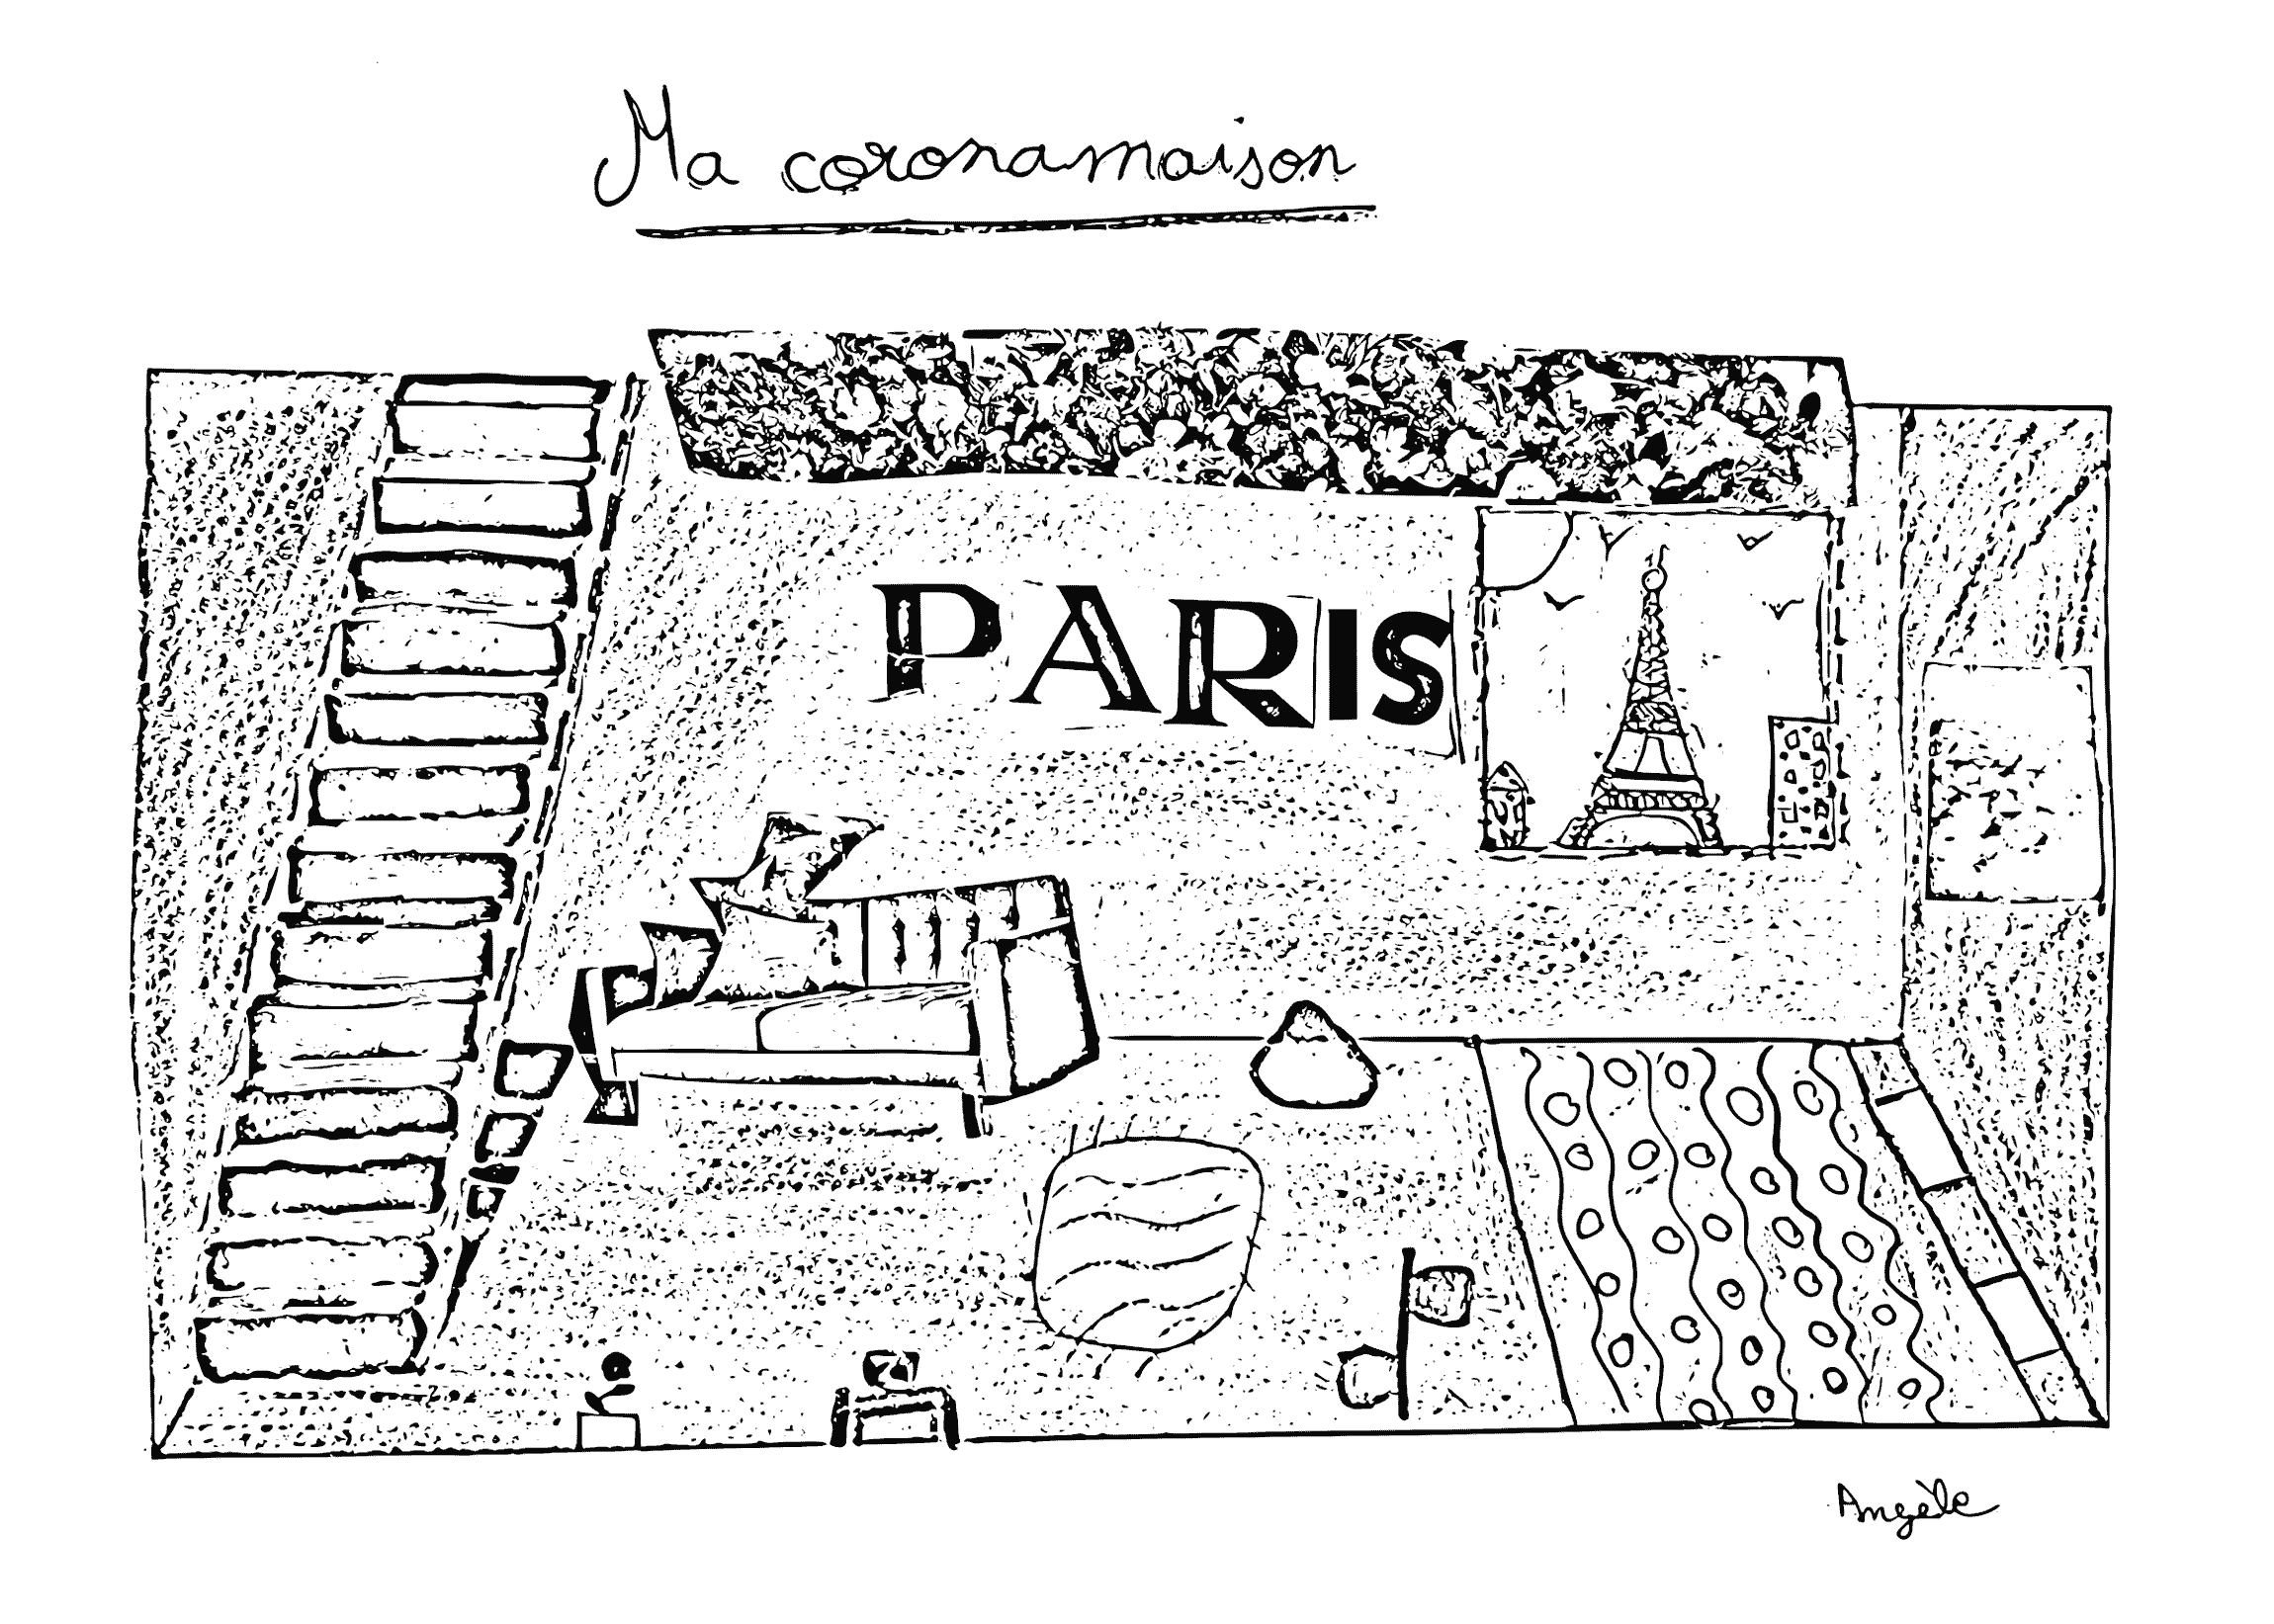 Ma coronamaison
PARIS
Angèle